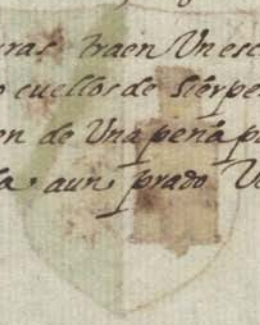 uras traen Un esc
o cuellos de Sierpe
en de Una peña p
la aun prado Ve